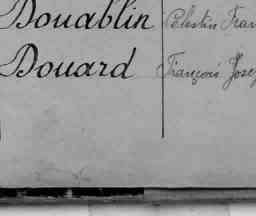 Douablin Célestin Fran
Douard François Jose